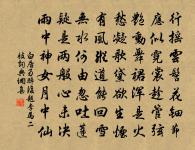 行搖雲髻花鈿節
應似霓裳趁管弦
艷動舞裙渾是火
愁凝歌黛欲生煙
有風縱道能回雪
無水何由忽吐蓮
疑是兩般心未決
雨中神女月中仙
白居易醉後題李馬二
妓詞典